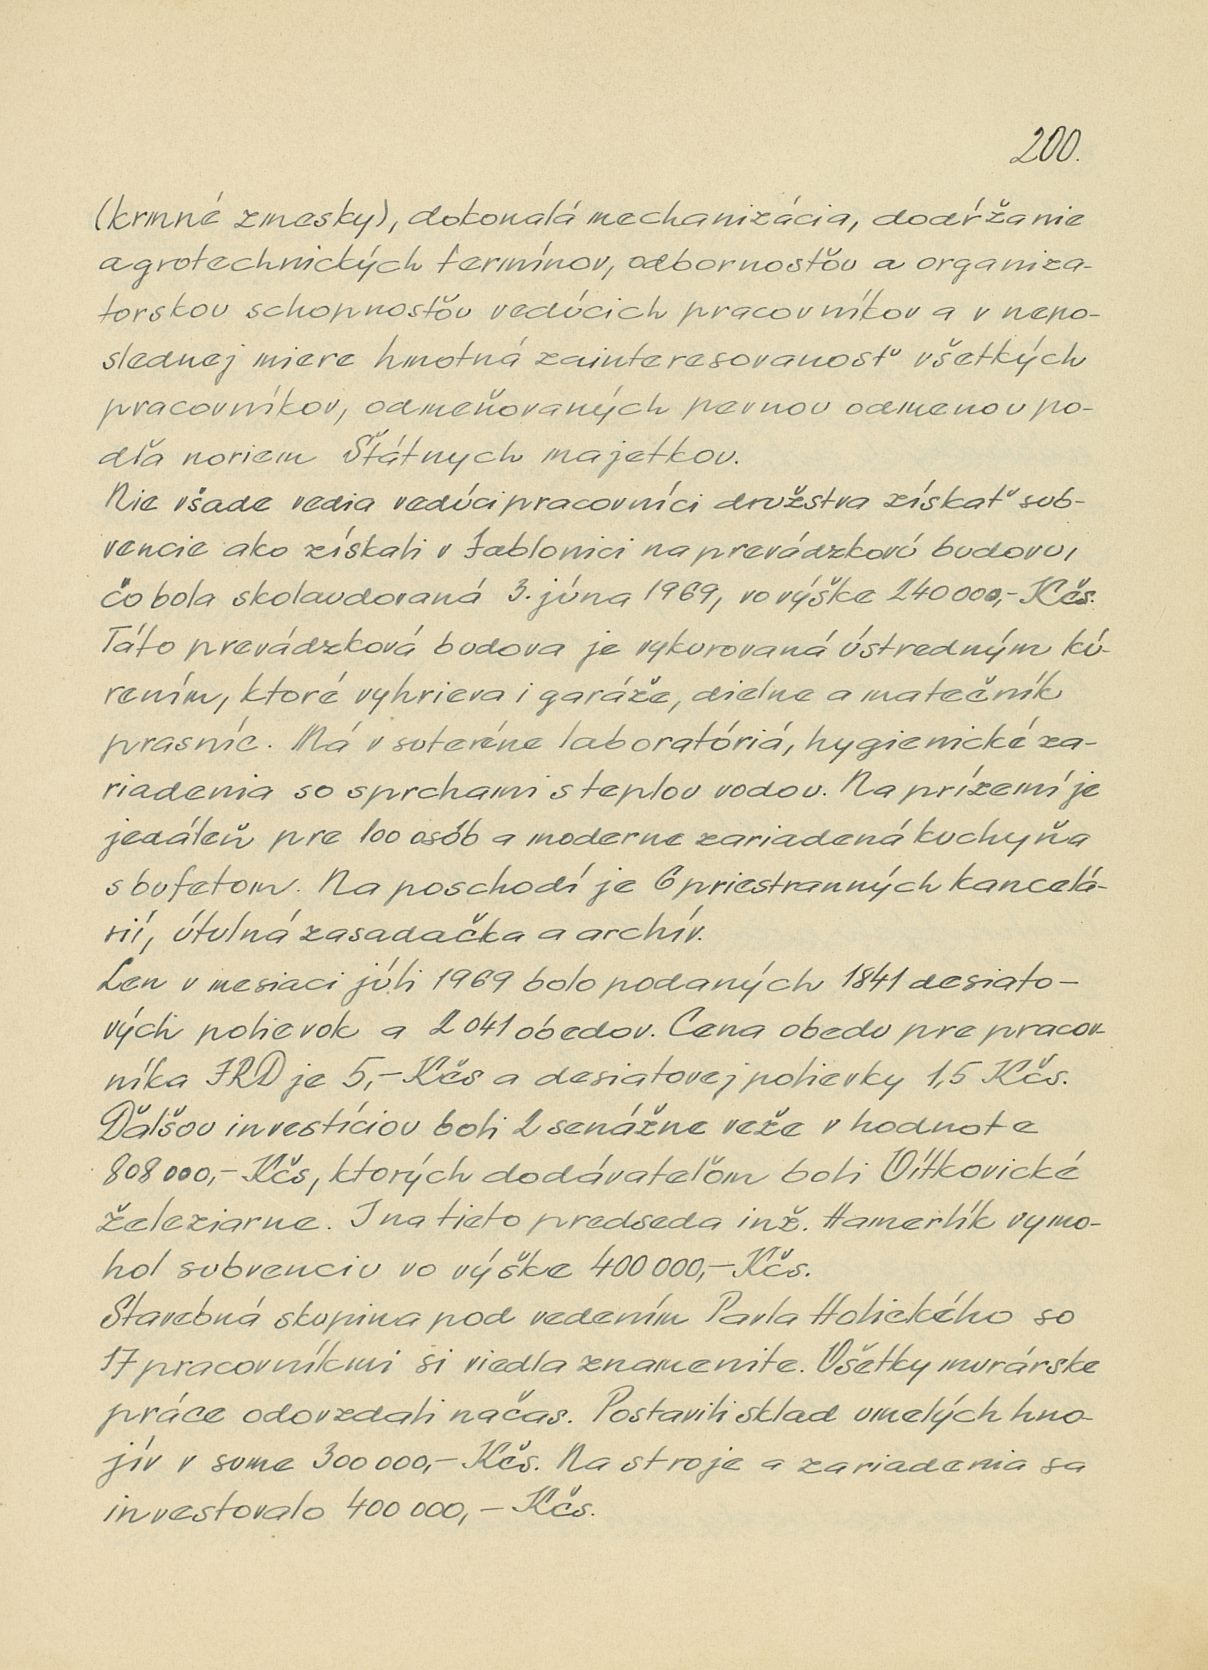 200.
(krmné zmesky), dokonalá mechanizácia, dodŕžanie
agrotechnických termínov, odbornosťou a organiza-
torskou schopnosťou vedúcich pracovníkov a v nepo-
slednej miere hmotná zainteresovanosť všetkých
pracovníkov, odmeňovaných pevnou odmenou po-
dľa noriem Štátnych majetkov.
Nie všade vedia vedúci pracovníci družstva získať sub-
vencie ako získali v Jablonici na prevádzkovú budovu,
čo bola skolaudovaná 3. júna 1969, vo výške 240 000,- Kčs.
Táto prevádzková budova je vykurovaná ústredným kú-
rením, ktoré vyhrieva i garáže, dielne a matečník
prasníc. Má v suteréne laboratóriá, hygienické za-
riadenia so sprchami s teplou vodou. Na prízemí je
jedáleň pre 100 osôb a moderne zariadená kuchyňa
s bufetom. Na poschodí je 6 priestranných kancelá-
rií, útulná zasadačka a archív.
Len v mesiaci júli 1969 bolo podaných 1841 desiato-
vých polievok a 2 041 obedov. Cena obedu pre pracov-
níka JRD je 5,- Kčs a desiatovej polievky 1,5 Kčs.
Ďalšou investíciou boli 2 senážne veže v hodnote
808 000,- Kčs, ktorých dodávateľom boli Vítkovické
železiarne. I na tieto predseda inž. Hamerlík vymo-
hol subvenciu vo výške 400 000,- Kčs.
Stavebná skupina pod vedením Pavla Holického so
17 pracovníkmi si viedla znamenite. Všetky murárske
práce odovzdali načas. Postavili sklad umelých hno-
jív v sume 300 000,- Kčs. Na stroje a zariadenia sa
investovalo 400 000,- Kčs.